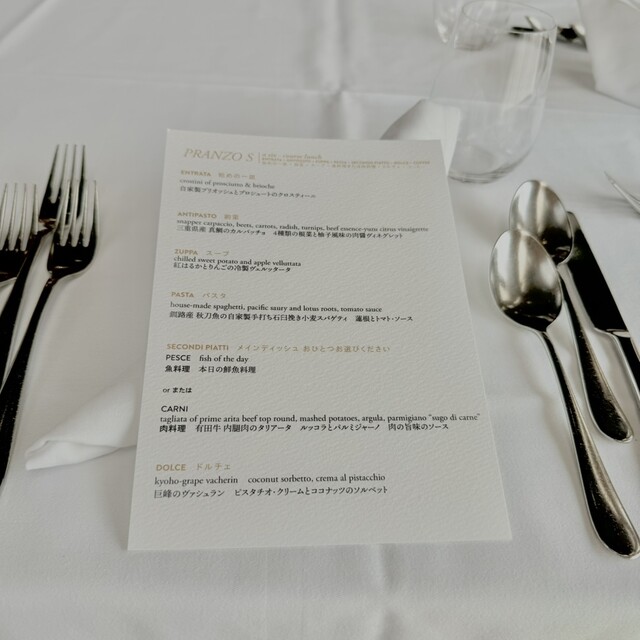 PRANZO S
ENTRATA 始めの一皿
crostini of prosciutto & brioche
自家製ブリオッシュとプロシュートのクロスティーニ
ANTIPASTO 前菜
snapper carpaccio, beets, carrots, radish, turnips, beef essence-yuzu citrus vinaigrette
三重県産 真鯛のカルパッチョ 4種類の根菜と柚子風味の肉醤ヴィネグレット
ZUPPA スープ
chilled sweet potato and apple velluttata
紅はるかとりんごの冷製ヴェルッタータ
PASTA パスタ
house-made spaghetti, pacific saury and lotus roots, tomato sauce
釧路産 秋刀魚の自家製手打ち石臼挽き小麦スパゲティ 蓮根とトマト・ソース
SECONDI PIATTI メインディッシュ おひとつお選びください
PESCE fish of the day
魚料理 本日の鮮魚料理
or または
CARNI
tagliata of prime arita beef top round, mashed potatoes, argula, parmigiano "sugo di carne"
肉料理 有田牛 内腿肉のタリアータ ルッコラとパルミジャーノ 肉の旨味のソース
DOLCE ドルチェ
kyoho-grape vacherin coconut sorbetto, crema al pistacchio
巨峰のヴァシュラン ピスタチオ・クリームとココナッツのソルベット